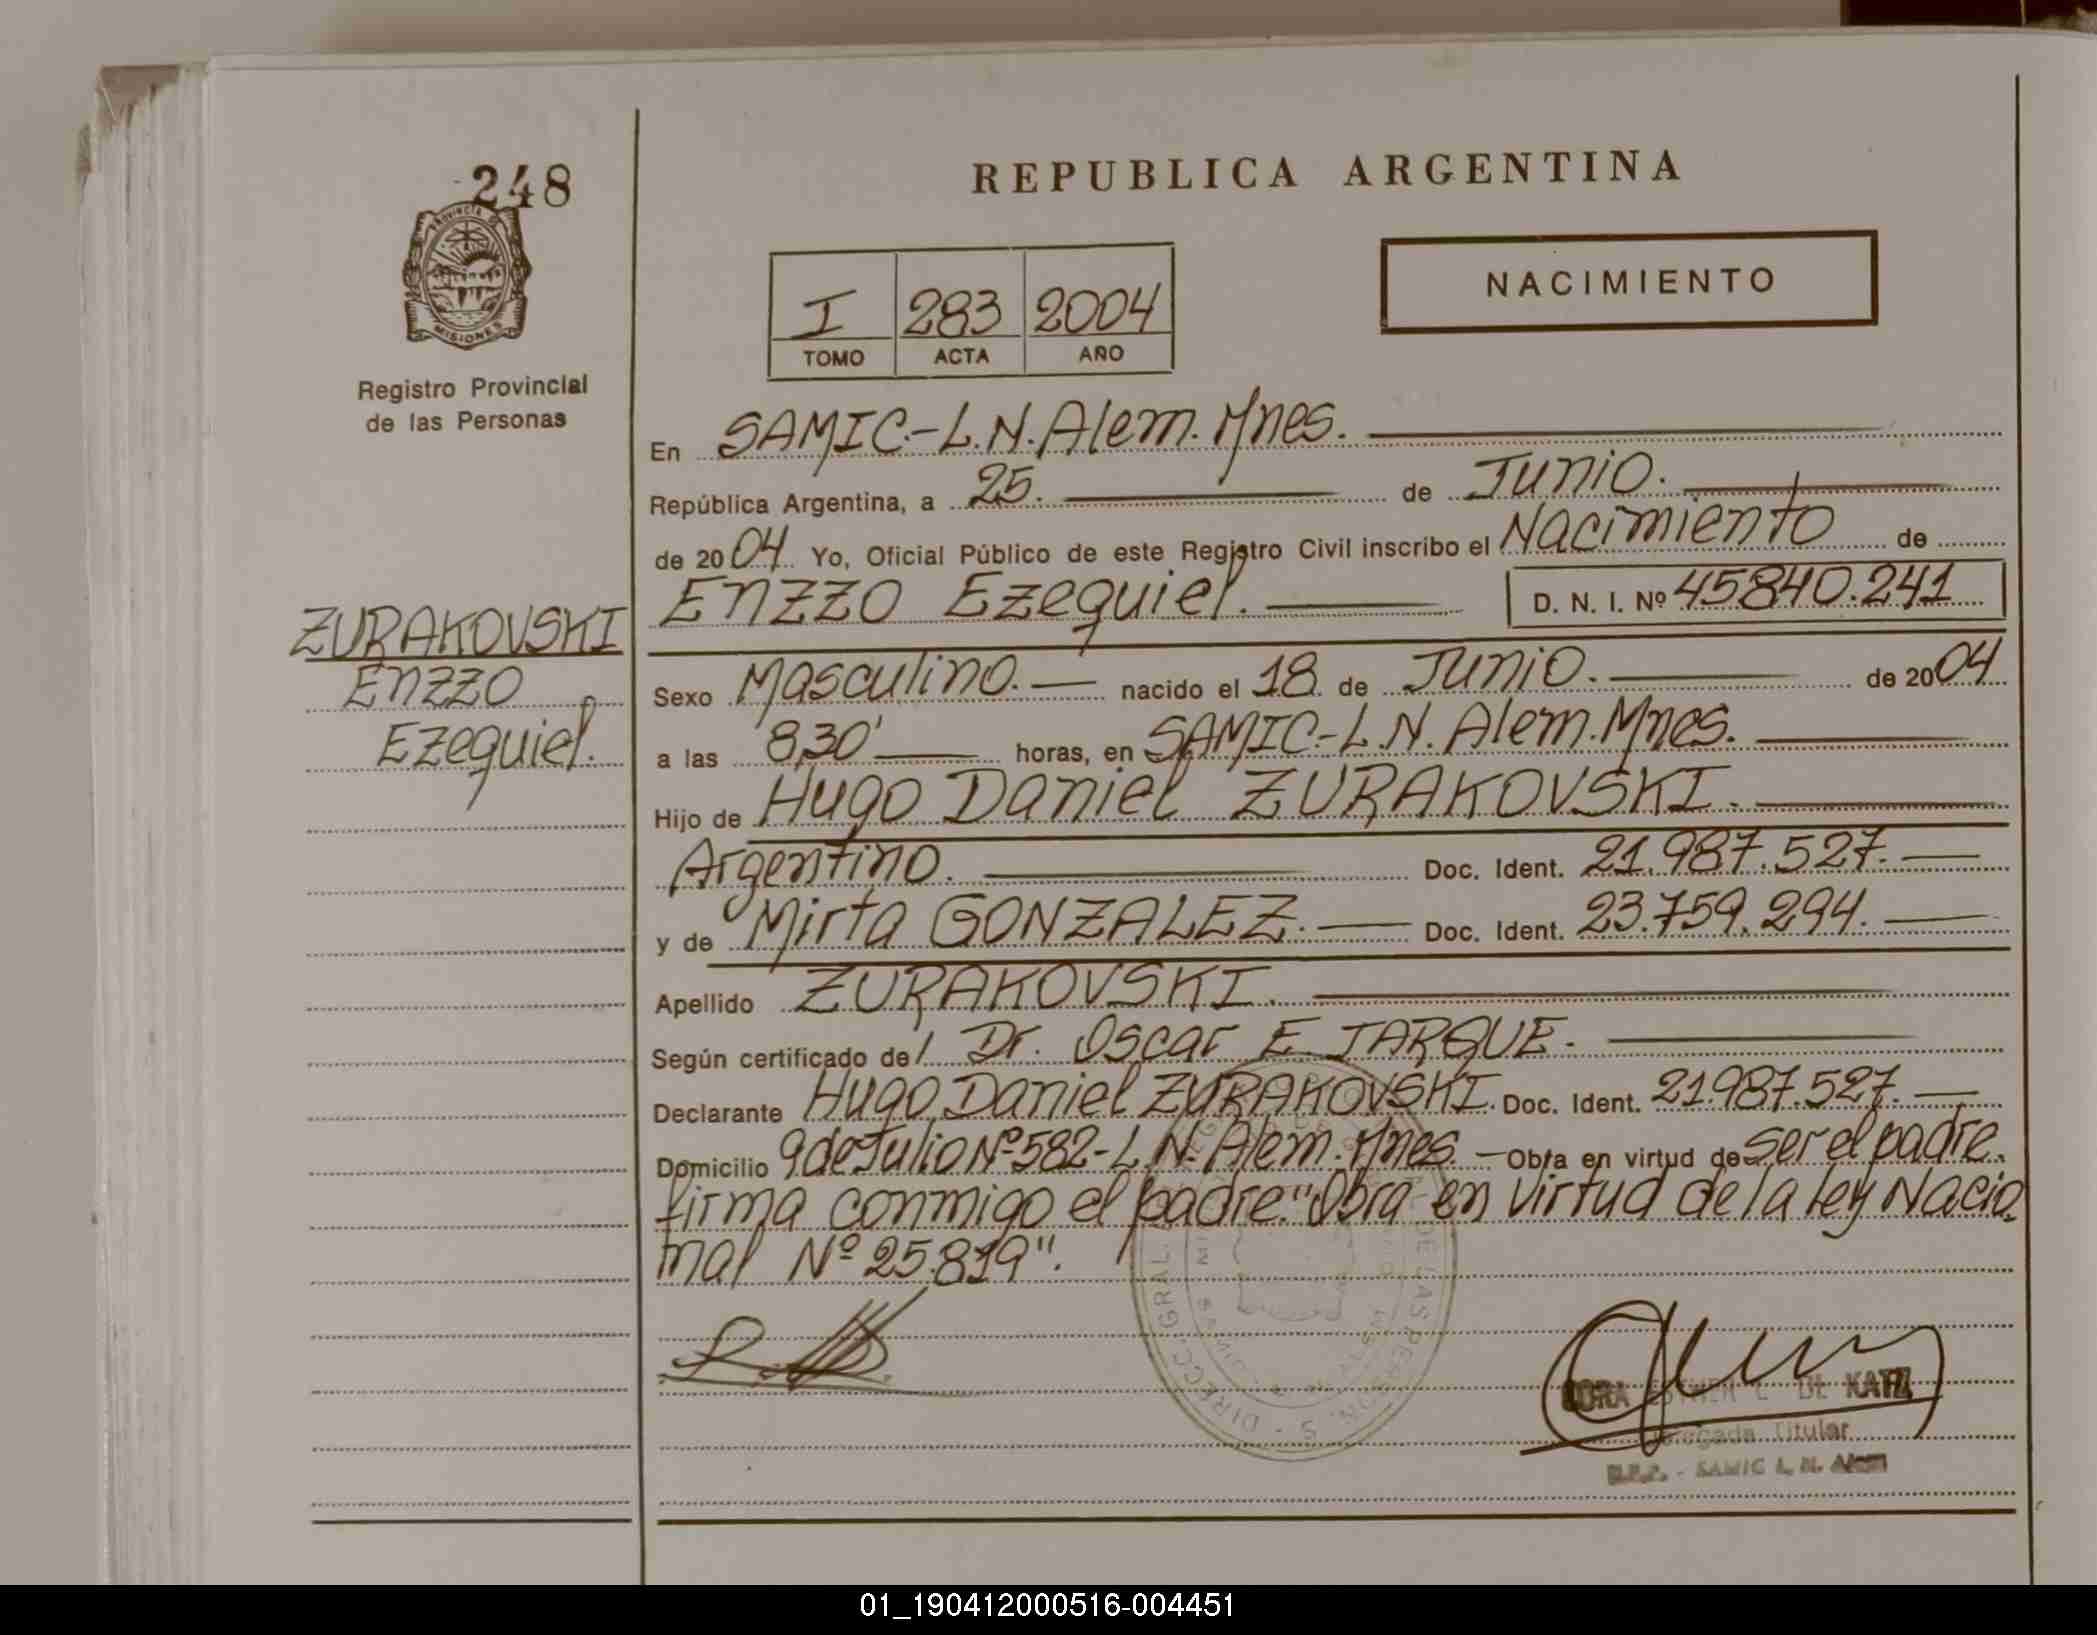 248
PROVINCIA DE
MISIONES
Registro Provincial
de las Personas
REPUBLICA ARGENTINA
NACIMIENTO
I 283 2004
TOMO ACTA AÑO
En SAMIC.-L.N.Alem.Mnes.
República Argentina, a 25. de Junio.
de 2004 Yo, Oficial Público de este Registro Civil inscribo el Nacimiento de
Enzzo Ezequiel. D. N. I. Nº 45840.241
ZURAKOVSKI
Enzzo
Ezequiel.
Sexo Masculino. nacido el 18 de Junio. de 2004
a las 8,30' horas, en SAMIC.-L.N.Alem.Mnes.
Hijo de Hugo Daniel ZURAKOVSKI.
Argentino. Doc. Ident. 21.987.527.
y de Mirta GONZALEZ. Doc. Ident. 23.759.294.
Apellido ZURAKOVSKI.
Según certificado del Dr. Oscar E JARQUE.
Declarante Hugo Daniel ZURAKOVSKI. Doc. Ident. 21.987.527.
Domicilio 9 de Julio Nº582-L.N.Alem.Mnes.-Obra en virtud de ser el padre.
firma conmigo el padre."Obra en virtud de la ley Nacio
nal Nº 25.819".
DE KATZ
Delegada Titular
SAMIC L. N. Alem
01_190412000516-004451